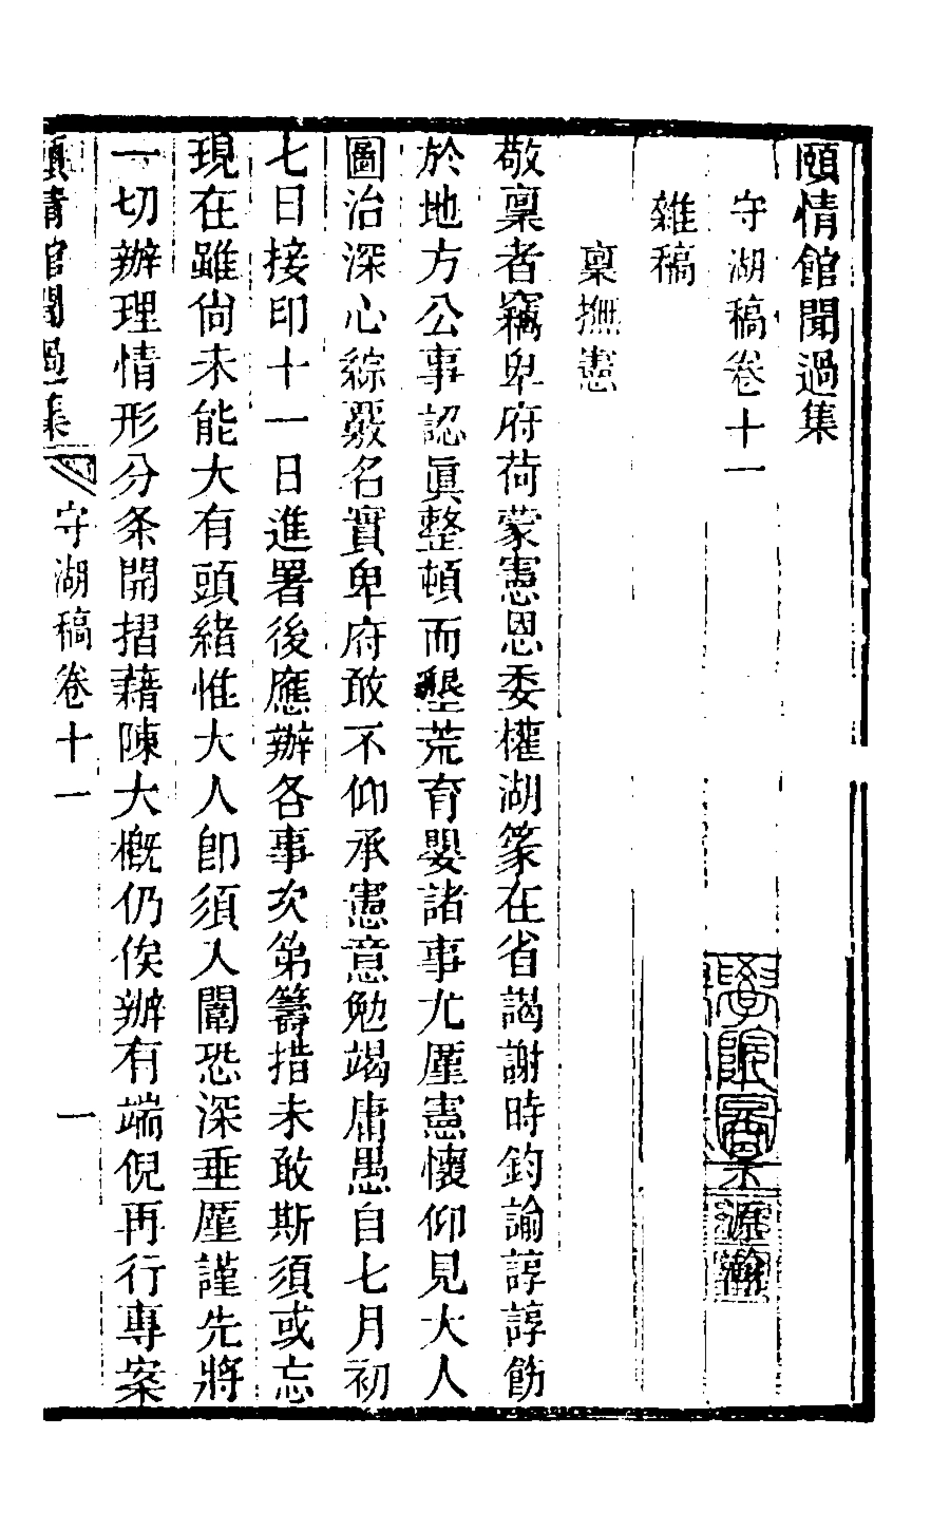 頤情館聞過集
守湖稿卷十一
雜稿
稟撫憲
敬稟者竊卑府荷蒙憲恩委權湖篆在省謁謝時鈞諭諄諄飭
於地方公事認眞整頓而墾荒育嬰諸事尤廑憲懷仰見大人
圖治深心綜覈名實卑府敢不仰承憲意勉竭庸愚自七月初
七日接印十一日進署後應辦各事次第籌措未敢斯須或忘
現在雖尙未能大有頭緒惟大人卽須入闈恐深垂廑謹先將
一切辦理情形分条開摺藉陳大槪仍俟辦有端倪再行專案
頤情館聞過集
守湖稿卷十一
一